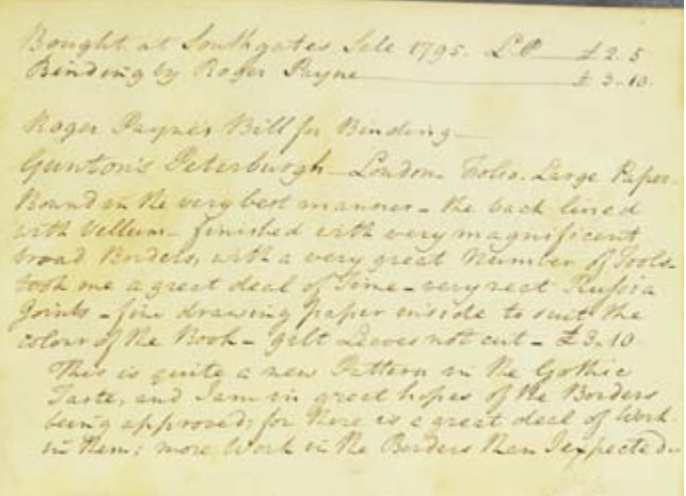 Bought at Southgates Sale 1795. L.P — £ 2. 5
Binding by Roger Payne — £ 3.10.
Roger Payne's Bill for Binding —
Gunton's Peterburgh – London. Folio. Large Paper.
Bound in the very best manner – the back lined
with Vellum – finished with very magnificent
broad Borders, with a very great Number of Tools –
took me a great deal of Time – very neat Russia
Joints – fine drawing paper inside to suit the
colour of the Book – gilt Leaves not cut – £3.10
This is quite a new Pattern in the Gothic
Taste, and I am in great hopes of the Borders
being approved; for there is a great deal of Work
in them; more Work in the Borders than I expected –